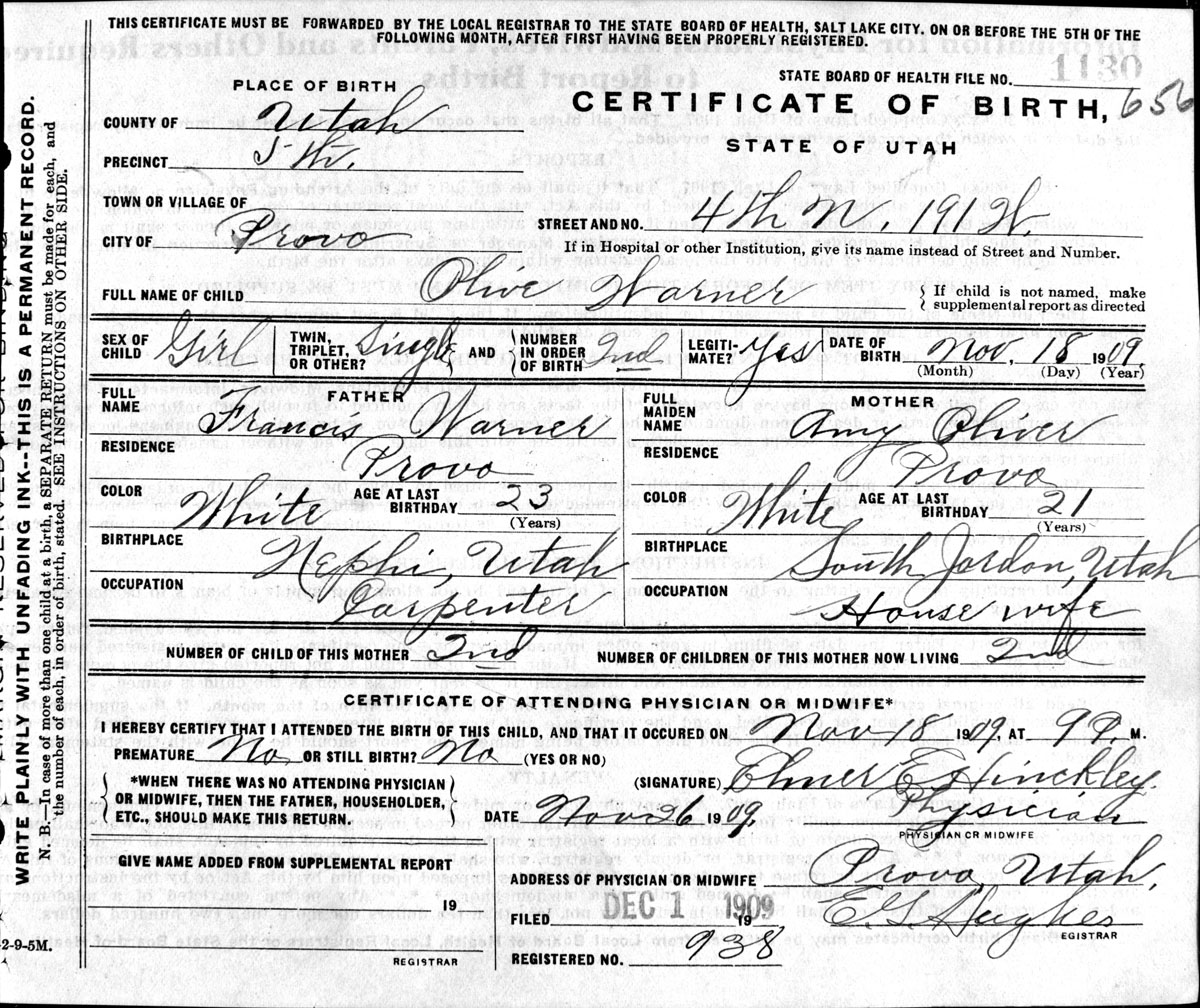 THIS CERTIFICATE MUST BE FORWARDED BY THE LOCAL REGISTRAR TO THE STATE BOARD OF HEALTH, SALT LAKE CITY. ON OR BEFORE THE 5TH OF THE
FOLLOWING MONTH, AFTER FIRST HAVING BEEN PROPERLY REGISTERED.
1130
STATE BOARD OF HEALTH FILE NO.
PLACE OF BIRTH
CERTIFICATE OF BIRTH, 656
STATE OF UTAH
COUNTY OF Utah
PRECINCT 5th.
TOWN OR VILLAGE OF
CITY OF Provo
STREET AND NO. 4th N, 191 W.
If in Hospital or other Institution, give its name instead of Street and Number.
FULL NAME OF CHILD Olive Warner
If child is not named, make
supplemental report as directed
SEX OF CHILD Girl
TWIN, TRIPLET, OR OTHER? Single AND NUMBER IN ORDER OF BIRTH 2nd
LEGITI- MATE? Yes
DATE OF BIRTH Nov. 18 1909
(Month) (Day) (Year)
FATHER
FULL NAME Frances Warner
RESIDENCE Provo
COLOR White AGE AT LAST BIRTHDAY 23
(Years)
BIRTHPLACE Nephi, Utah
OCCUPATION Carpenter
MOTHER
FULL MAIDEN NAME Amy Oliver
RESIDENCE Provo
COLOR White AGE AT LAST BIRTHDAY 21
(Years)
BIRTHPLACE South Jordon, Utah
OCCUPATION House wife
NUMBER OF CHILD OF THIS MOTHER 2nd NUMBER OF CHILDREN OF THIS MOTHER NOW LIVING 2nd
CERTIFICATE OF ATTENDING PHYSICIAN OR MIDWIFE*
I HEREBY CERTIFY THAT I ATTENDED THE BIRTH OF THIS CHILD, AND THAT IT OCCURED ON Nov 18 1909, AT 9 P. M.
PREMATURE No OR STILL BIRTH? No (YES OR NO)
(SIGNATURE) Elmer E Hinckley.
*WHEN THERE WAS NO ATTENDING PHYSICIAN
OR MIDWIFE, THEN THE FATHER, HOUSEHOLDER,
ETC., SHOULD MAKE THIS RETURN.
DATE Nov 26 1909
Physician
PHYSICIAN OR MIDWIFE
GIVE NAME ADDED FROM SUPPLEMENTAL REPORT
19
REGISTRAR
ADDRESS OF PHYSICIAN OR MIDWIFE Provo, Utah.
FILED DEC 1 1909 19
E. E. Hughes
EGISTRAR
REGISTERED NO. 938
WRITE PLAINLY WITH UNFADING INK---THIS IS A PERMANENT RECORD.
N. B.—In case of more than one child at a birth, a SEPARATE RETURN must be made for each, and
the number of each, in order of birth, stated. SEE INSTRUCTIONS ON OTHER SIDE.
2-9-5M.